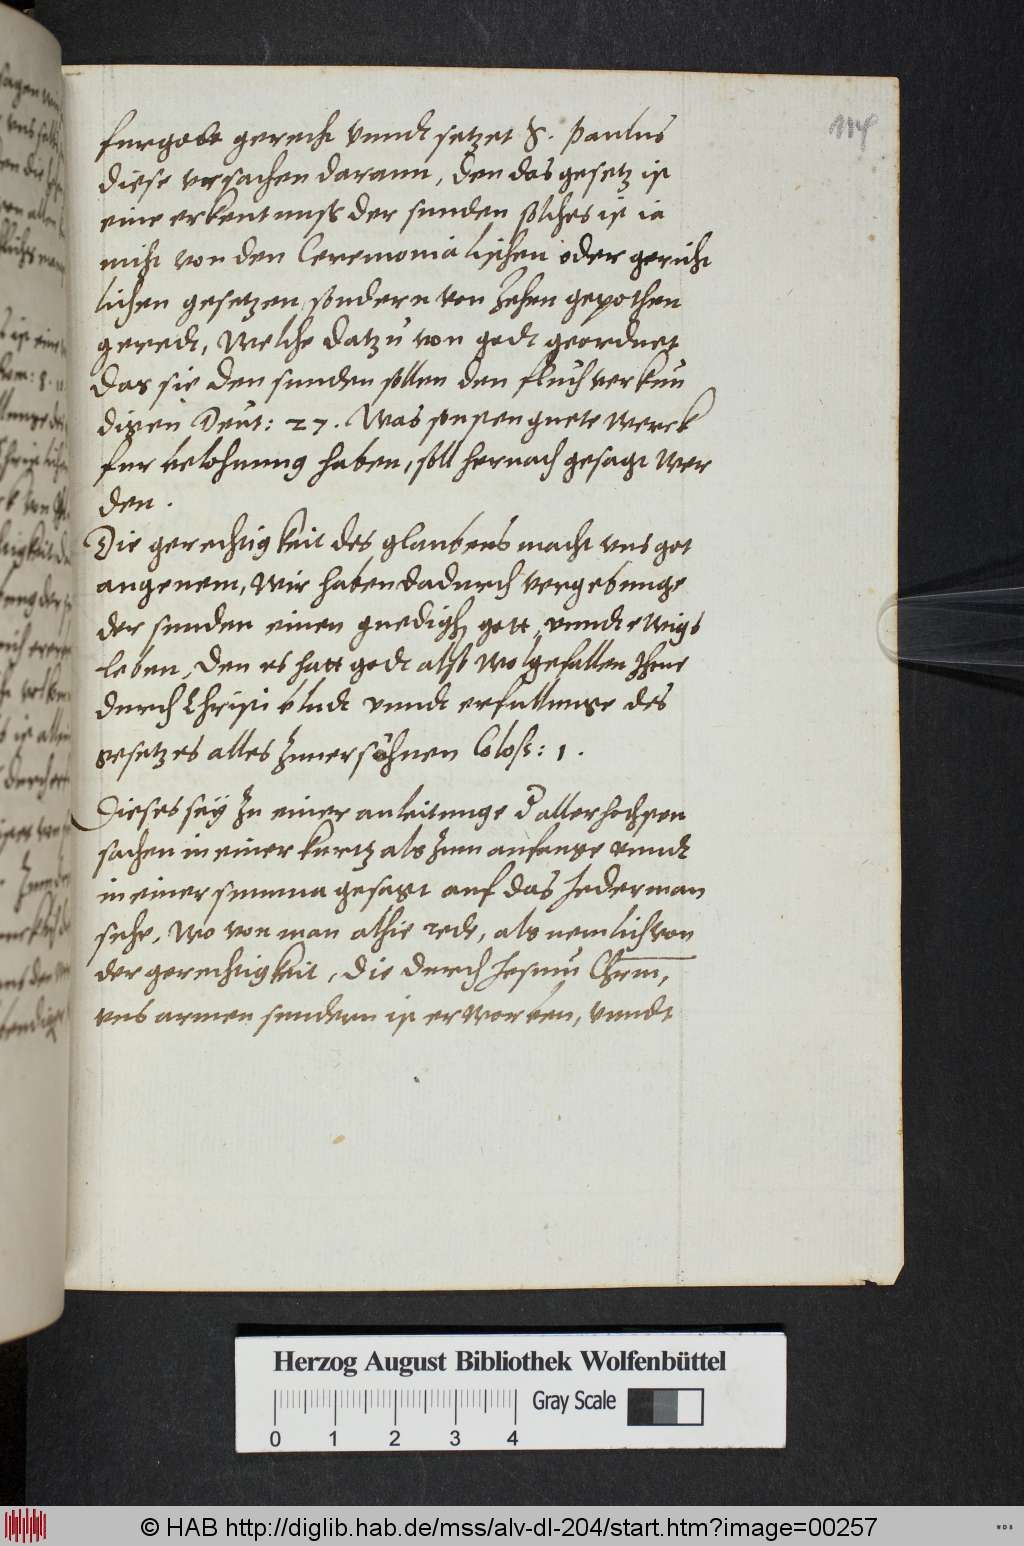 114
furgabe gerecht vnndt setzet S. Paulus
diese vrsachen darann, den das gesetz ist
eine erkentnuss der sunden solches ist ia
nicht von den Ceremonialischen oder gericht
lichen gesetzen, sondern von Zehen gepothen
geredt, Welche datzu von godt geordnet
das sie den sunden sollen den fluch verkun
digen Deut: 27. Was sonsten gnete werck
fur belohnung haben, soll hernach gesagt wer
den.
Die gerechtigkeit des glaubens macht vns got
angenem, Wir haben dadurch vergebunge
der sunden einen gnedigen gott, vnndt ewigs
leben, Den es hatt godt also wolgefallen Ihene
durch Christi bludt vnndt erfullunge des
gesetzes alles Zuuersöhnen Coloss: 1.
Dieses sey Zu einer anleitunge d allerhochsten
sachen in einer kurtz als Zum anfange vnndt
in einer summa gesagt auf das Jederman
sehe, wo von man alhie rede, als nemlich von
der gerechtigkeit, die durch Jesum Chrm,
vns armen sundern ist erworben, vnndt
Herzog August Bibliothek Wolfenbüttel
Gray Scale
0 1 2 3 4
© HAB http://diglib.hab.de/mss/alv-dl-204/start.htm?image=00257